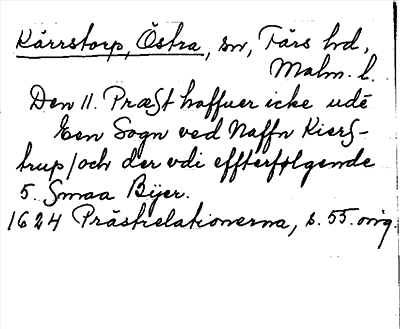 Kärrstorp, Östra, sn, Färs hd,
Malm. l.
Den 11. Præst haffuer icke udē
Een Sogn ved Naffn Kiers-
trup / och der vdi effterfølgende
5. Smaa Bÿer.
1624 Prästrelationerna, s. 55. orig.